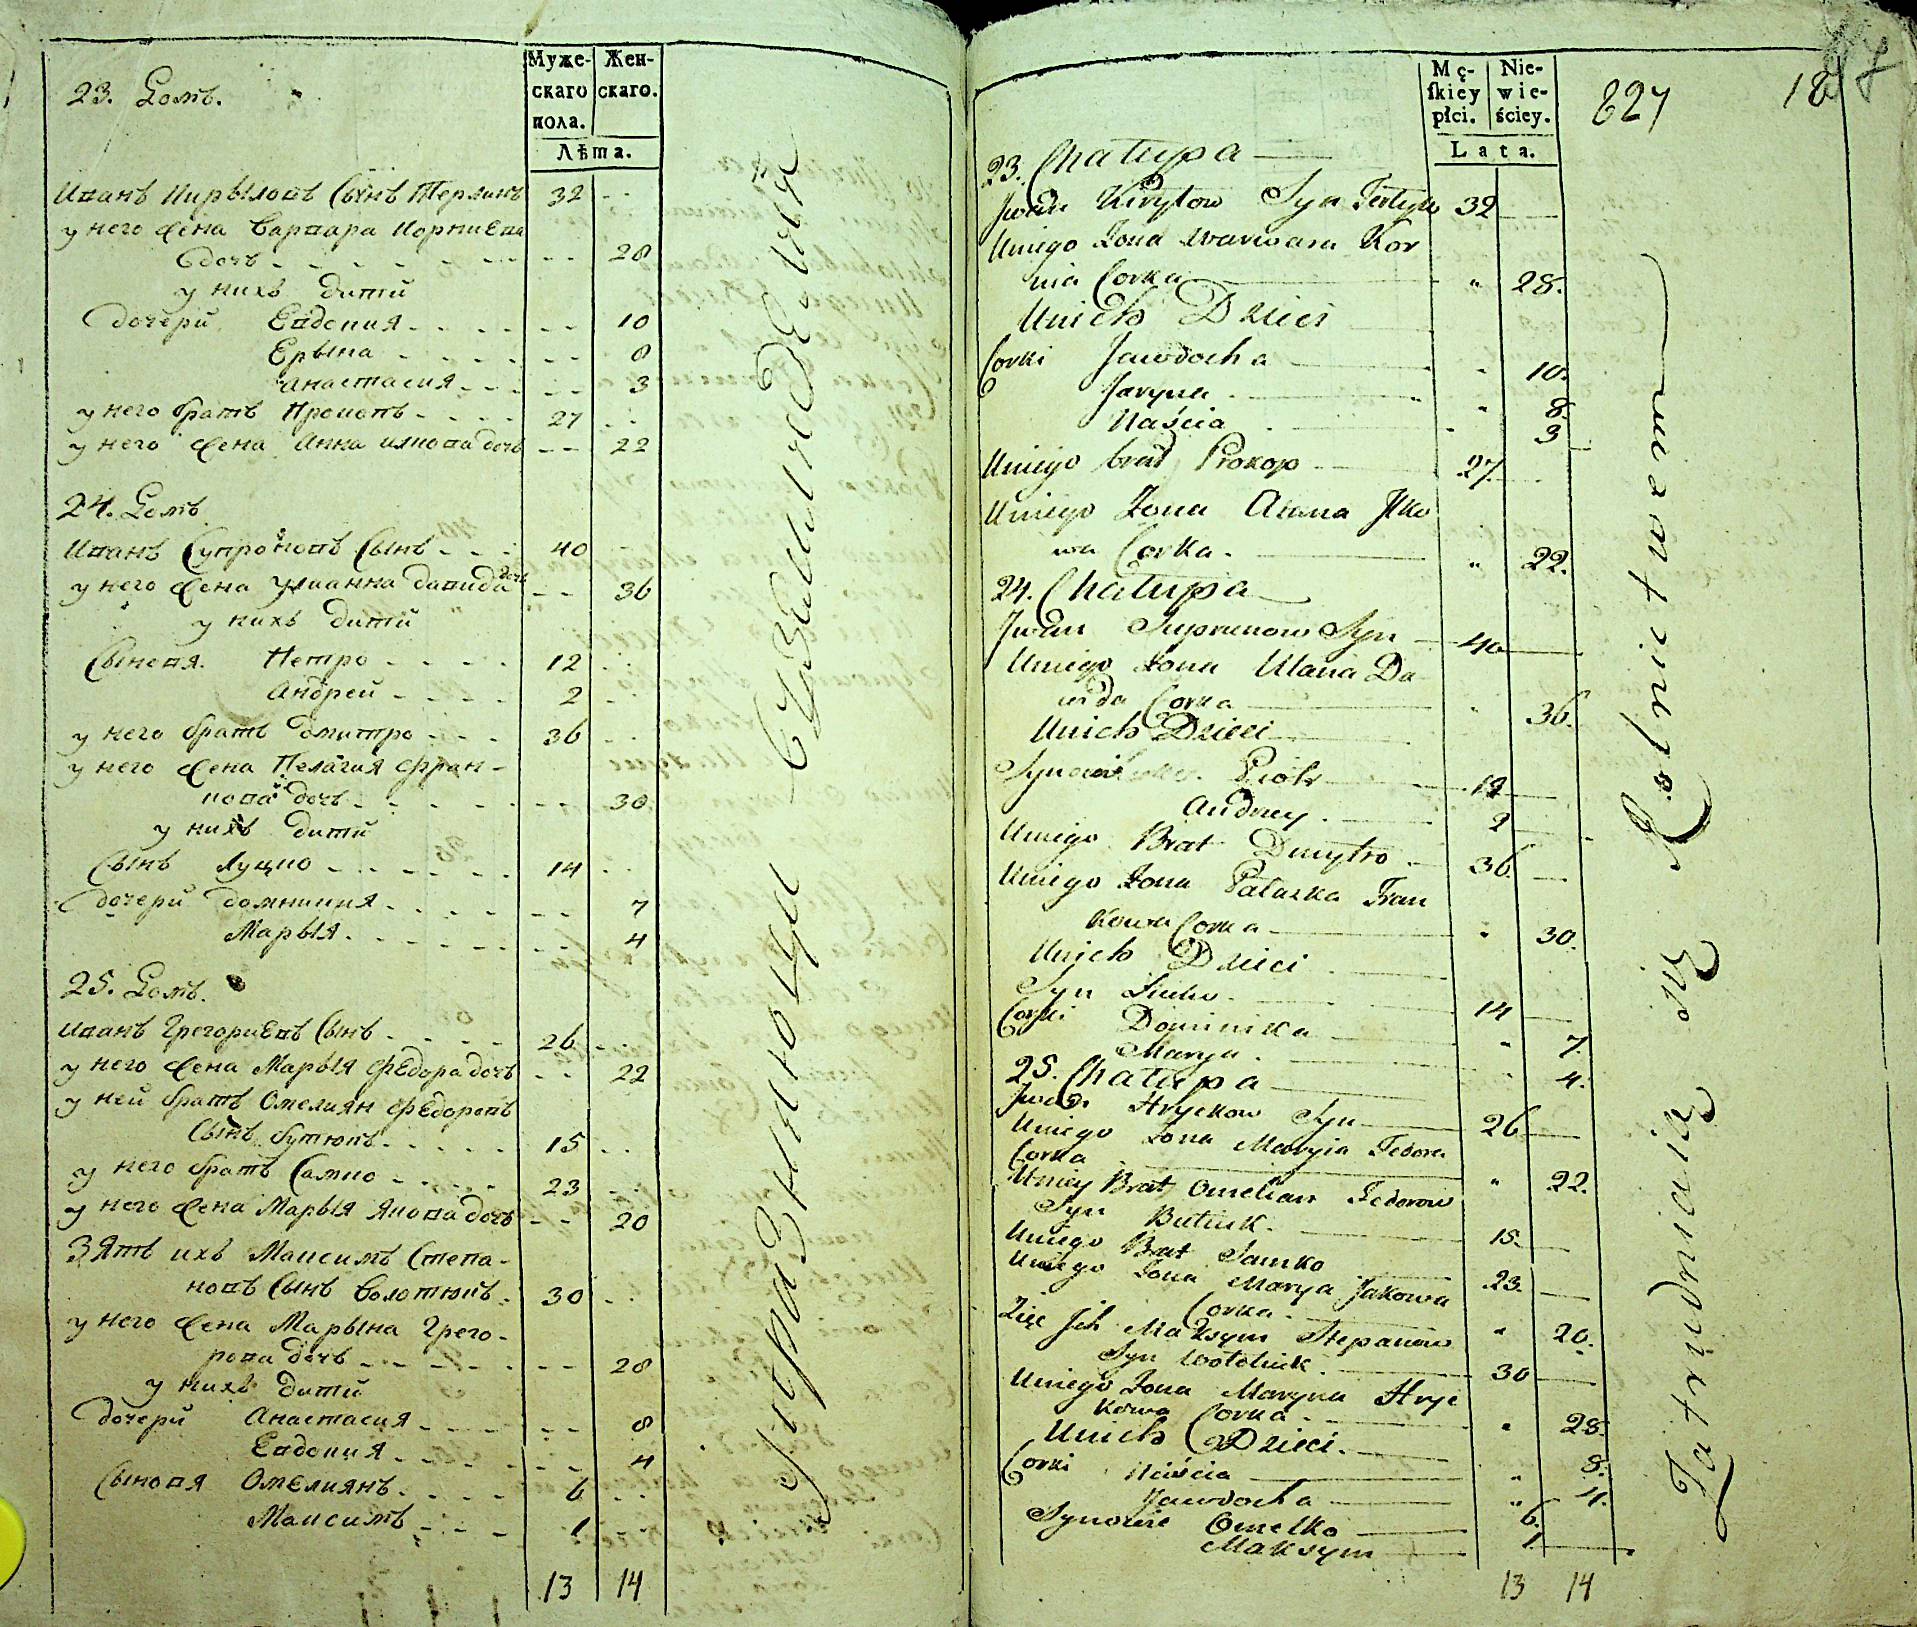 Муже-
скаго
пола.
Жен-
скаго.
Лѣта.
23. Домъ.
Иванъ Кирыловъ Сынъ 32
у него жена Варвара Корниева
дочь 28
у нихъ дити
дочери Евдокия 10
Ерына 8
Анастасия 3
у него братъ Прокопъ 27
у него жена Анна илкова дочь 22
24. Домъ
Иванъ Супроновъ Сынъ 40
у него жена Улианна давида дочь 36
у нихъ дити
Сыновя. Петро 12
Андрей 2
у него братъ дмитро 36
у него жена Пелагия фран-
кова дочь 30
у нихъ дити
Сынъ Луцко 14
дочери домникия 7
Марыя 4
25. Домъ.
Иванъ Григориевъ Сынъ 26
у него жена Марыя федора дочь 22
у ней братъ Омелиян федоровъ
Сынъ Бутюкъ 15
у него братъ Самко 23
у него жена Марыя Якова дочь 20
Зять ихъ Максимъ Степа-
новъ Сынъ Волотюкъ 30
у него жена Марына Грего-
рова дочь 28
у нихъ дити
дочери Анастасия 8
Евдокия 4
Сыновя Омелиянъ 6
Максимъ 1
13 14
Упражняюца Вземляделиия
Mę-
skiey
płci.
Nie-
wie-
ściey.
Lata.
827
18
23. Chałupa
Jwan Kiryłow Syn 32
Uniego Żona Warwara Kor
nia Corka 28.
Unich Dzieci
Corki Jawdocha 10.
Jaryna 8.
Naścia 3
Uniego brat Prokop 27.
Uniego Żona Anna Jlko
wa Corka 22.
24. Chałupa
Jwan Suprunow Syn 40
Uniego Żona Ulana Da
wida Corka 36.
Unich Dzieci
Synowie Piotr 12
Andrey 2
Uniego Brat Dmytro 36.
Uniego Żona Pałazka Fran
kowa Corka 30.
Unich Dzieci
Syn Łucko 14
Corki Dominika 7.
Marya 4.
25. Chałupa
Jwan Hryckow Syn 26
Uniego Żona Maryia Fedora
Corka 22.
Uniey Brat Omelian Fedorow
Syn Butiuk 15.
Uniego Brat Samko 23.
Uniego Żona Marya Jakowa
Corka 20.
Zięc Jch Maksym Stepanow
Syn Wołotiuk 30
Uniego Żona Maryna Hryc
kowa Corka 28.
Unich Dzieci
Corki Naścia 8.
Jawdocha 4.
Synowie Omelko 6.
Maksym 1
13 14
Zatrudniaią się Rolnictwem